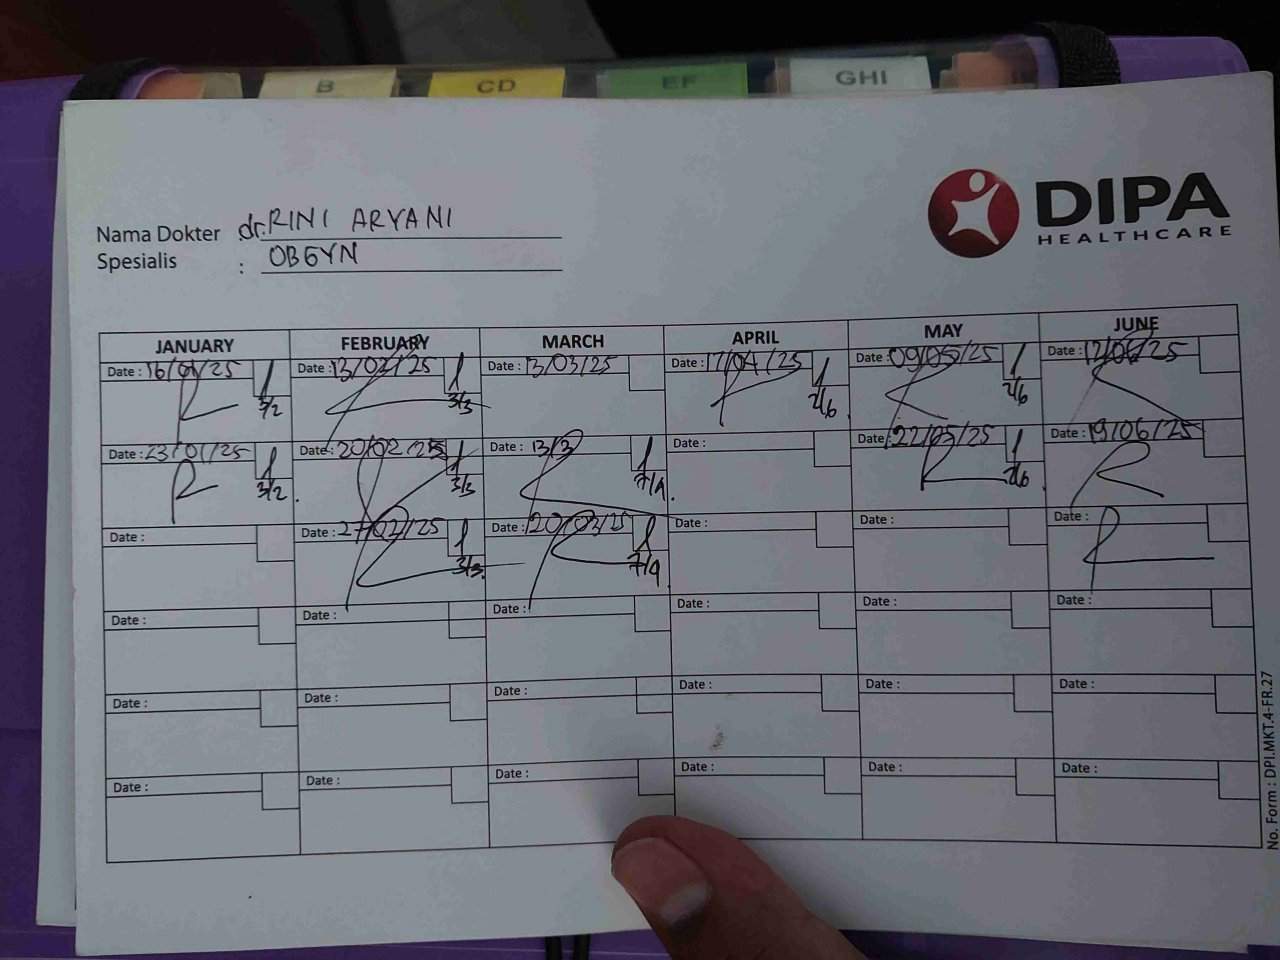 B CD EF GHI
DIPA
HEALTHCARE
Nama Dokter : dr. RINI ARYANI
Spesialis : OBGYN
JANUARY FEBRUARY MARCH APRIL MAY JUNE
Date : 16/01/25 Date : 13/02/25 Date : 13/03/25 Date : 17/04/25 Date : 09/05/25 Date : 12/06/25
3/2 3/3 2/6 2/6
Date : 23/01/25 Date : 20/02/25 Date : 13/3 Date : Date : 22/05/25 Date : 19/06/25
3/2 3/3 7/4 2/6
Date : Date : 27/02/25 Date : 20/03/25 Date : Date : Date :
3/3 7/4
Date : Date : Date : Date : Date : Date :
Date : Date : Date : Date : Date : Date :
Date : Date : Date : Date : Date : Date :
No. Form : DPI.MKT.4-FR.27